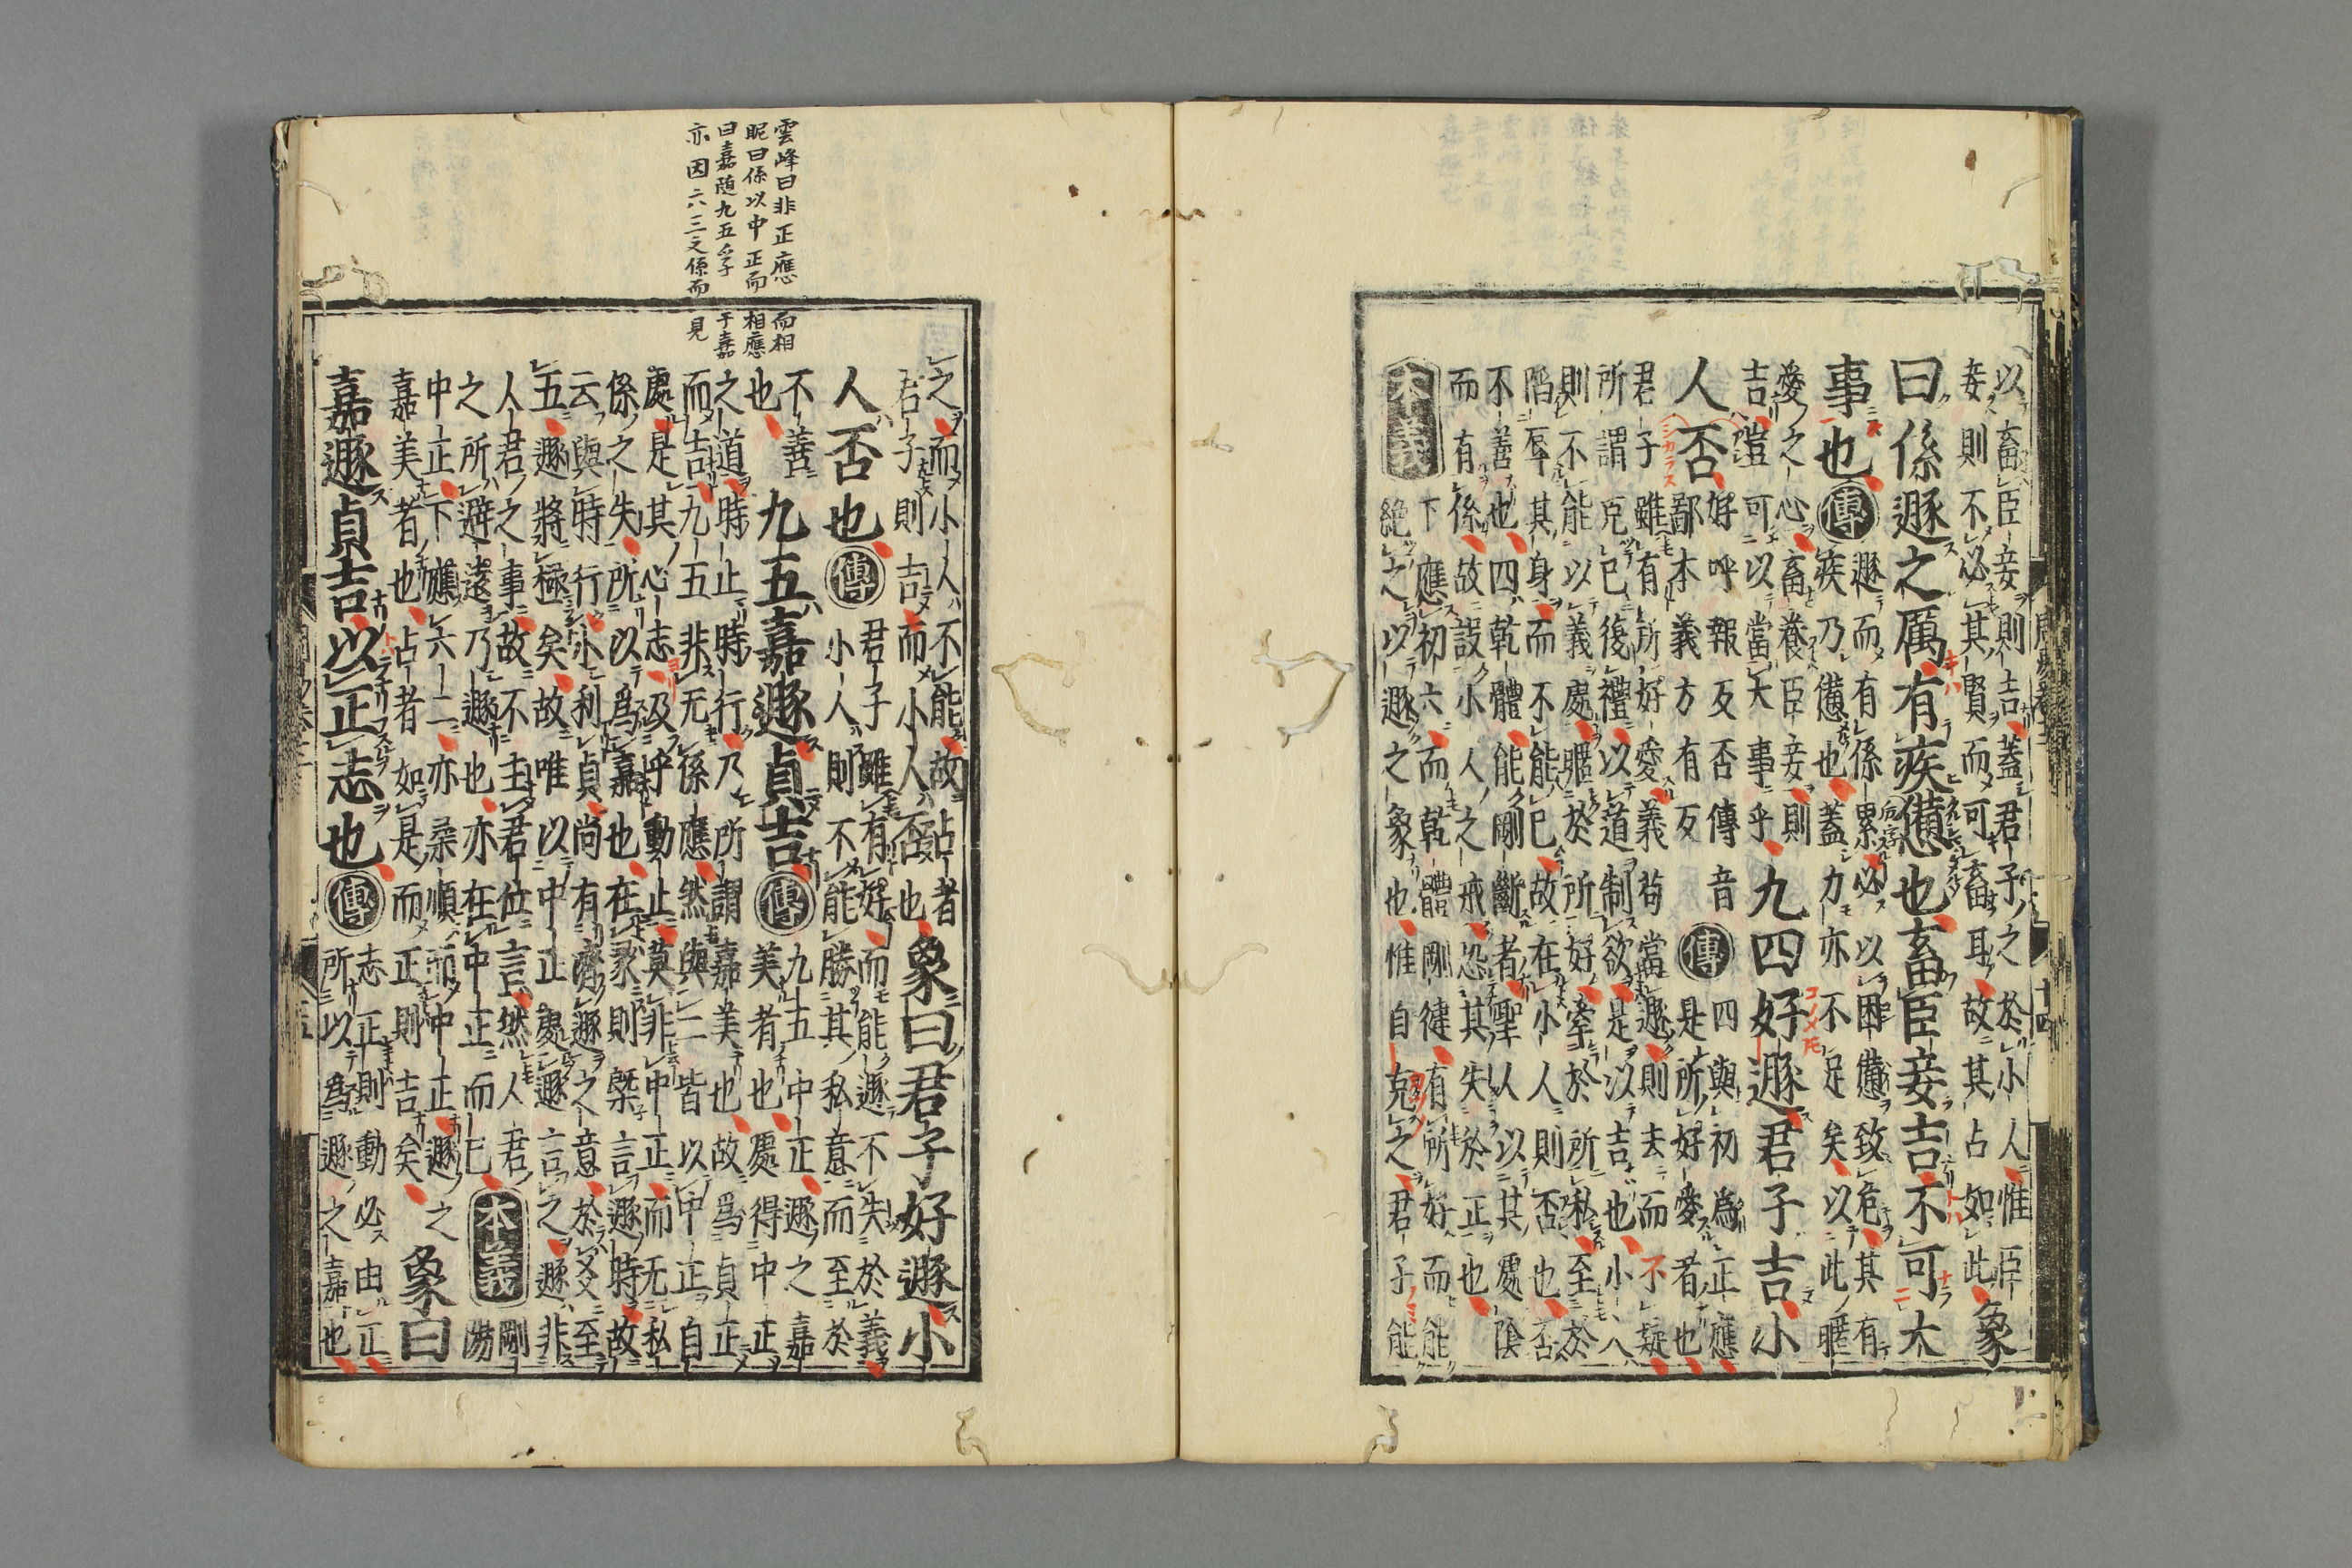 以畜臣妾則吉蓋君子之於小人惟臣
妾則不必其賢而可畜耳故其占如此 象
曰係遯之厲有疾憊也畜臣妾吉不可大
事也 傳 遯而有係累必以困憊致危其有
疾乃憊也蓋力亦不足矣以此暱
愛之心畜養臣妾則
吉豈可以當大事乎 九四好遯君子吉小
人否 好呼報反否傳音
鄙本義方有反 傳 四與初爲正應
是所好愛者也
君子雖有所好愛義苟當遯則去而不疑
所謂克已復禮以道制欲是以吉也小人
則不能以義處暱於所好牽於所私至於
陷辱其身而不能已故在小人則否也否
不善也四乾體能剛斷者聖人以其處陰
而有係故設小人之戒恐其失於正也
本義 下應初六而乾體剛健有所好而能
絕之以遯之象也惟自克之君子能
周易卷十二
十四
雲峰曰非正應而相
昵曰係以中正而相應
曰嘉随九五孚于嘉
亦因六三之係而見
之而小人不能故占者
君子則吉而小人否也 象曰君子好遯小
人否也 傳 君子雖有好而能遯不失於義
小人則不能勝其私意而至於
不善
也 九五嘉遯貞吉 傳 九五中正遯之嘉
美者也處得中正
之道時止時行乃所謂嘉美也故爲貞正
而吉九五非无係應然與二皆以中正自
處是其心志及乎動止莫非中正而无私
係之失所以爲嘉也在彖則槩言遯時故
云與時行小利貞尚有濟遯之意於爻至
五遯將極矣故唯以中正處遯言之遯非
人君之事故不主君位言然人君
之所避遠乃遯也亦在中正而已 本義 剛陽
中正下應六二亦柔順而中正遯之
嘉美者也占者如是而正則吉矣 象曰
嘉遯貞吉以正志也 傳 志正則動必由正
所以爲遯之嘉也